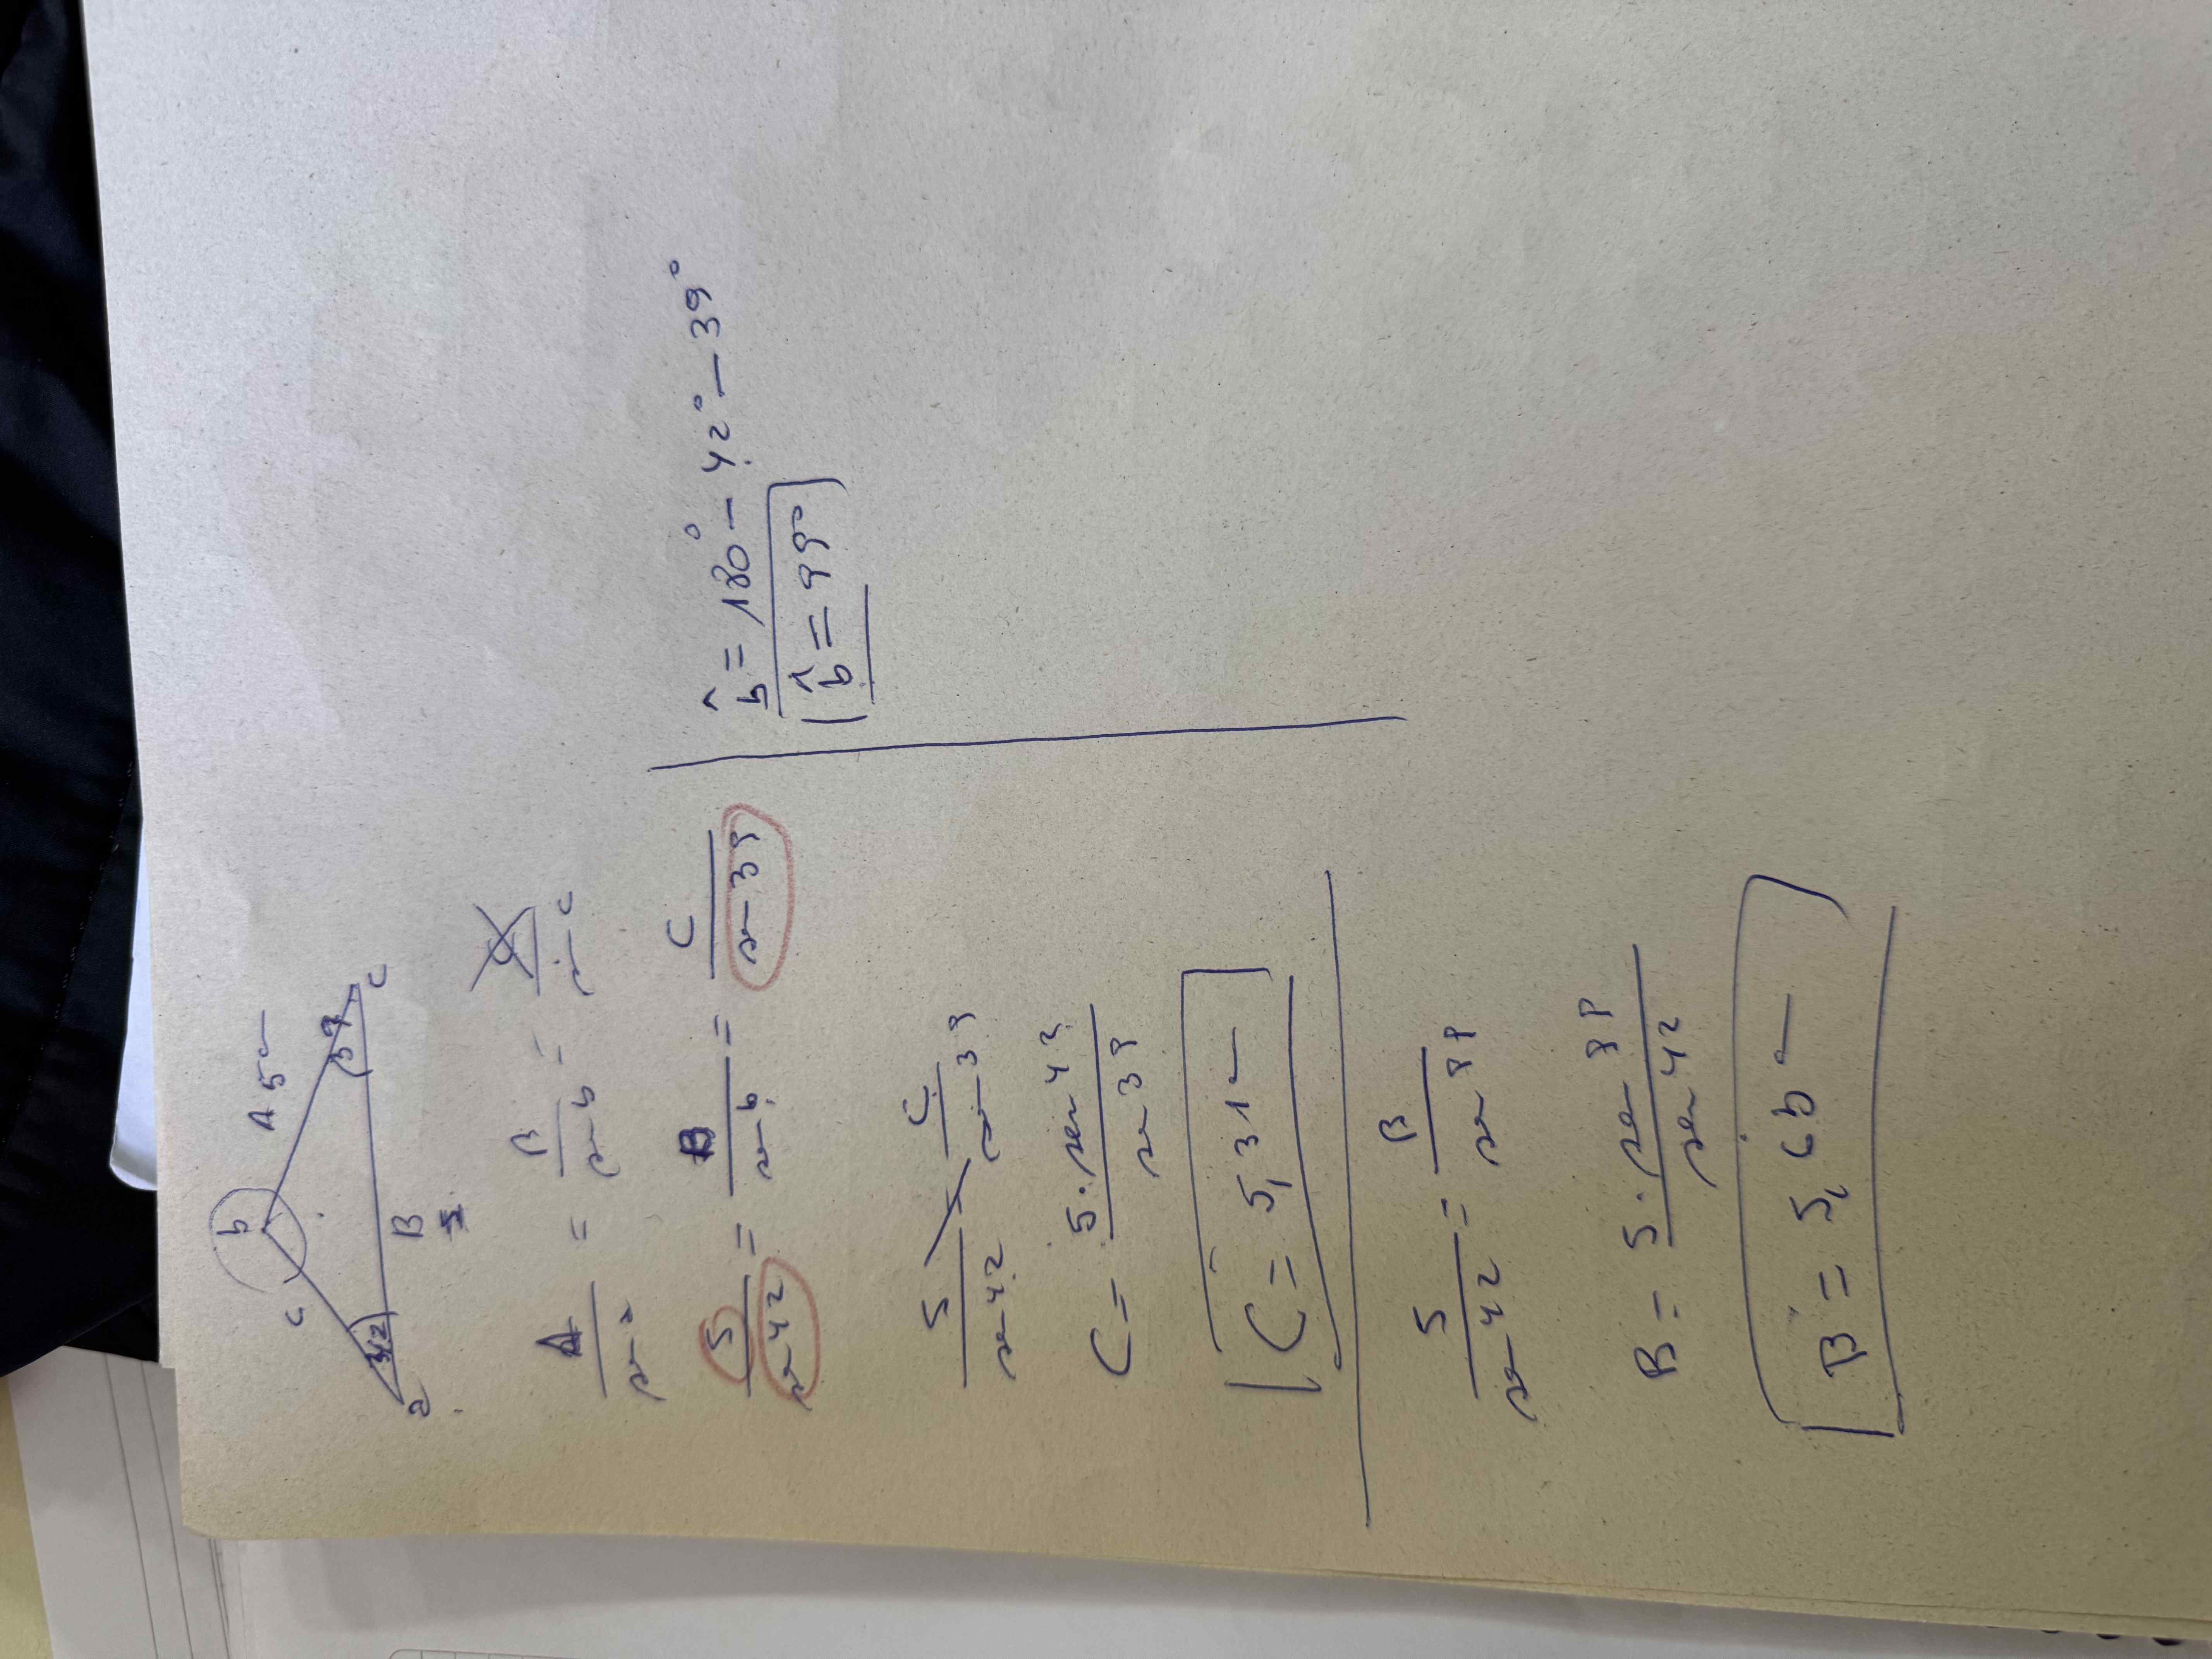 b
C
A 5cm
42
39
a
c
B
A/sen a = B/sen b = C/sen c
5/sen 42 = B/sen b = C/sen 39
b̂ = 180° - 42° - 39°
b̂ = 99°
5/sen 42 = C/sen 39
C = 5 · sen 42/sen 39
C = 5,31 cm
5/sen 42 = B/sen 99
B = 5 · sen 99/sen 42